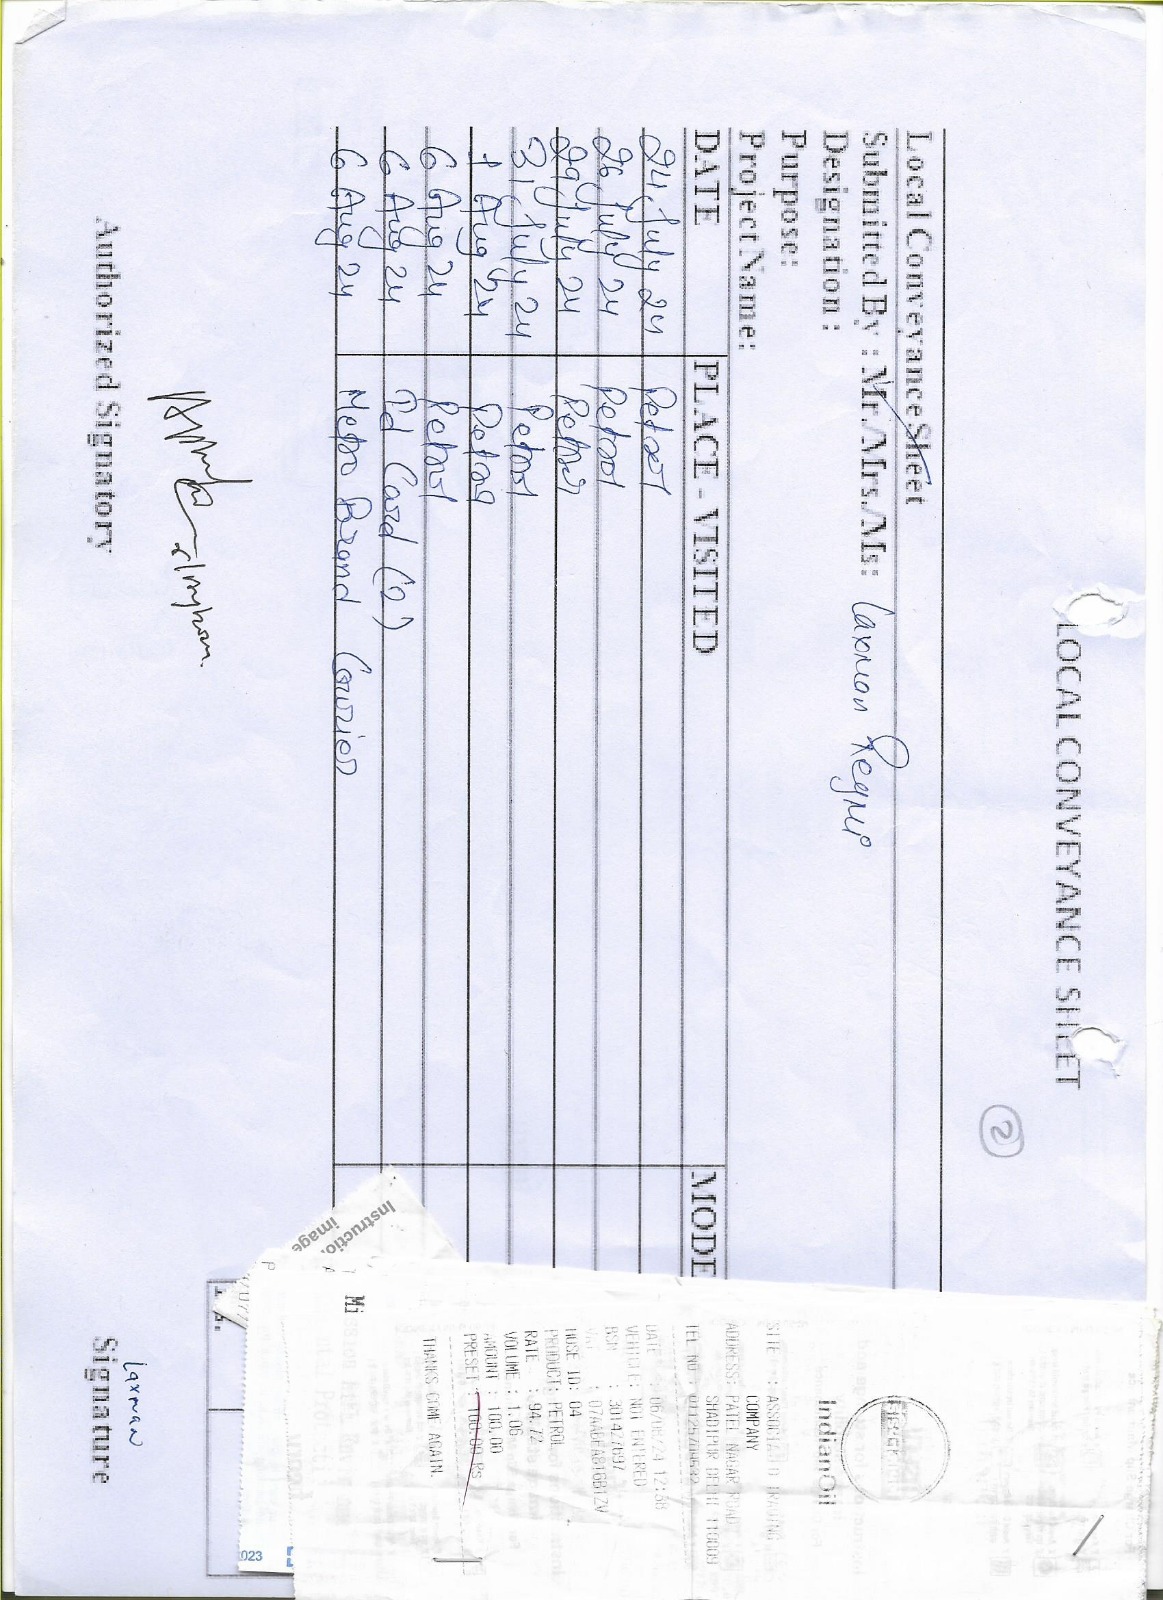 LOCAL CONVEYANCE SHEET
2
Local Conveyance Sheet
Submitted By : Mr./Mrs./Ms: Laxman Regmi
Designation :
Purpose:
Project Name:
DATE PLACE - VISITED MODE
24 July 24 Petrol
26 July 24 Petrol
29 July 24 Petrol
31 July 24 Petrol
1 Aug 24 Petrol
6 Aug 24 Petrol
6 Aug 24 Id Card (2)
6 Aug 24 Metro Brand Courier
Authorized Signatory
Laxman
Signature
Instructio
image
Mi
023
IndianOil
SITE : ASSOCIATED TRADING
COMPANY
ADDRESS: PATEL NAGAR ROAD
SHADIPUR DELHI 110008
TEL NO :
DATE : 06/08/24 12:38
VEHICLE: NOT ENTERED
HOSE ID: 04
PRODUCT: PETROL
RATE : 94.72
VOLUME : 1.06
AMOUNT : 100.00
PRESET : 100.00 Rs
THANKS COME AGAIN.